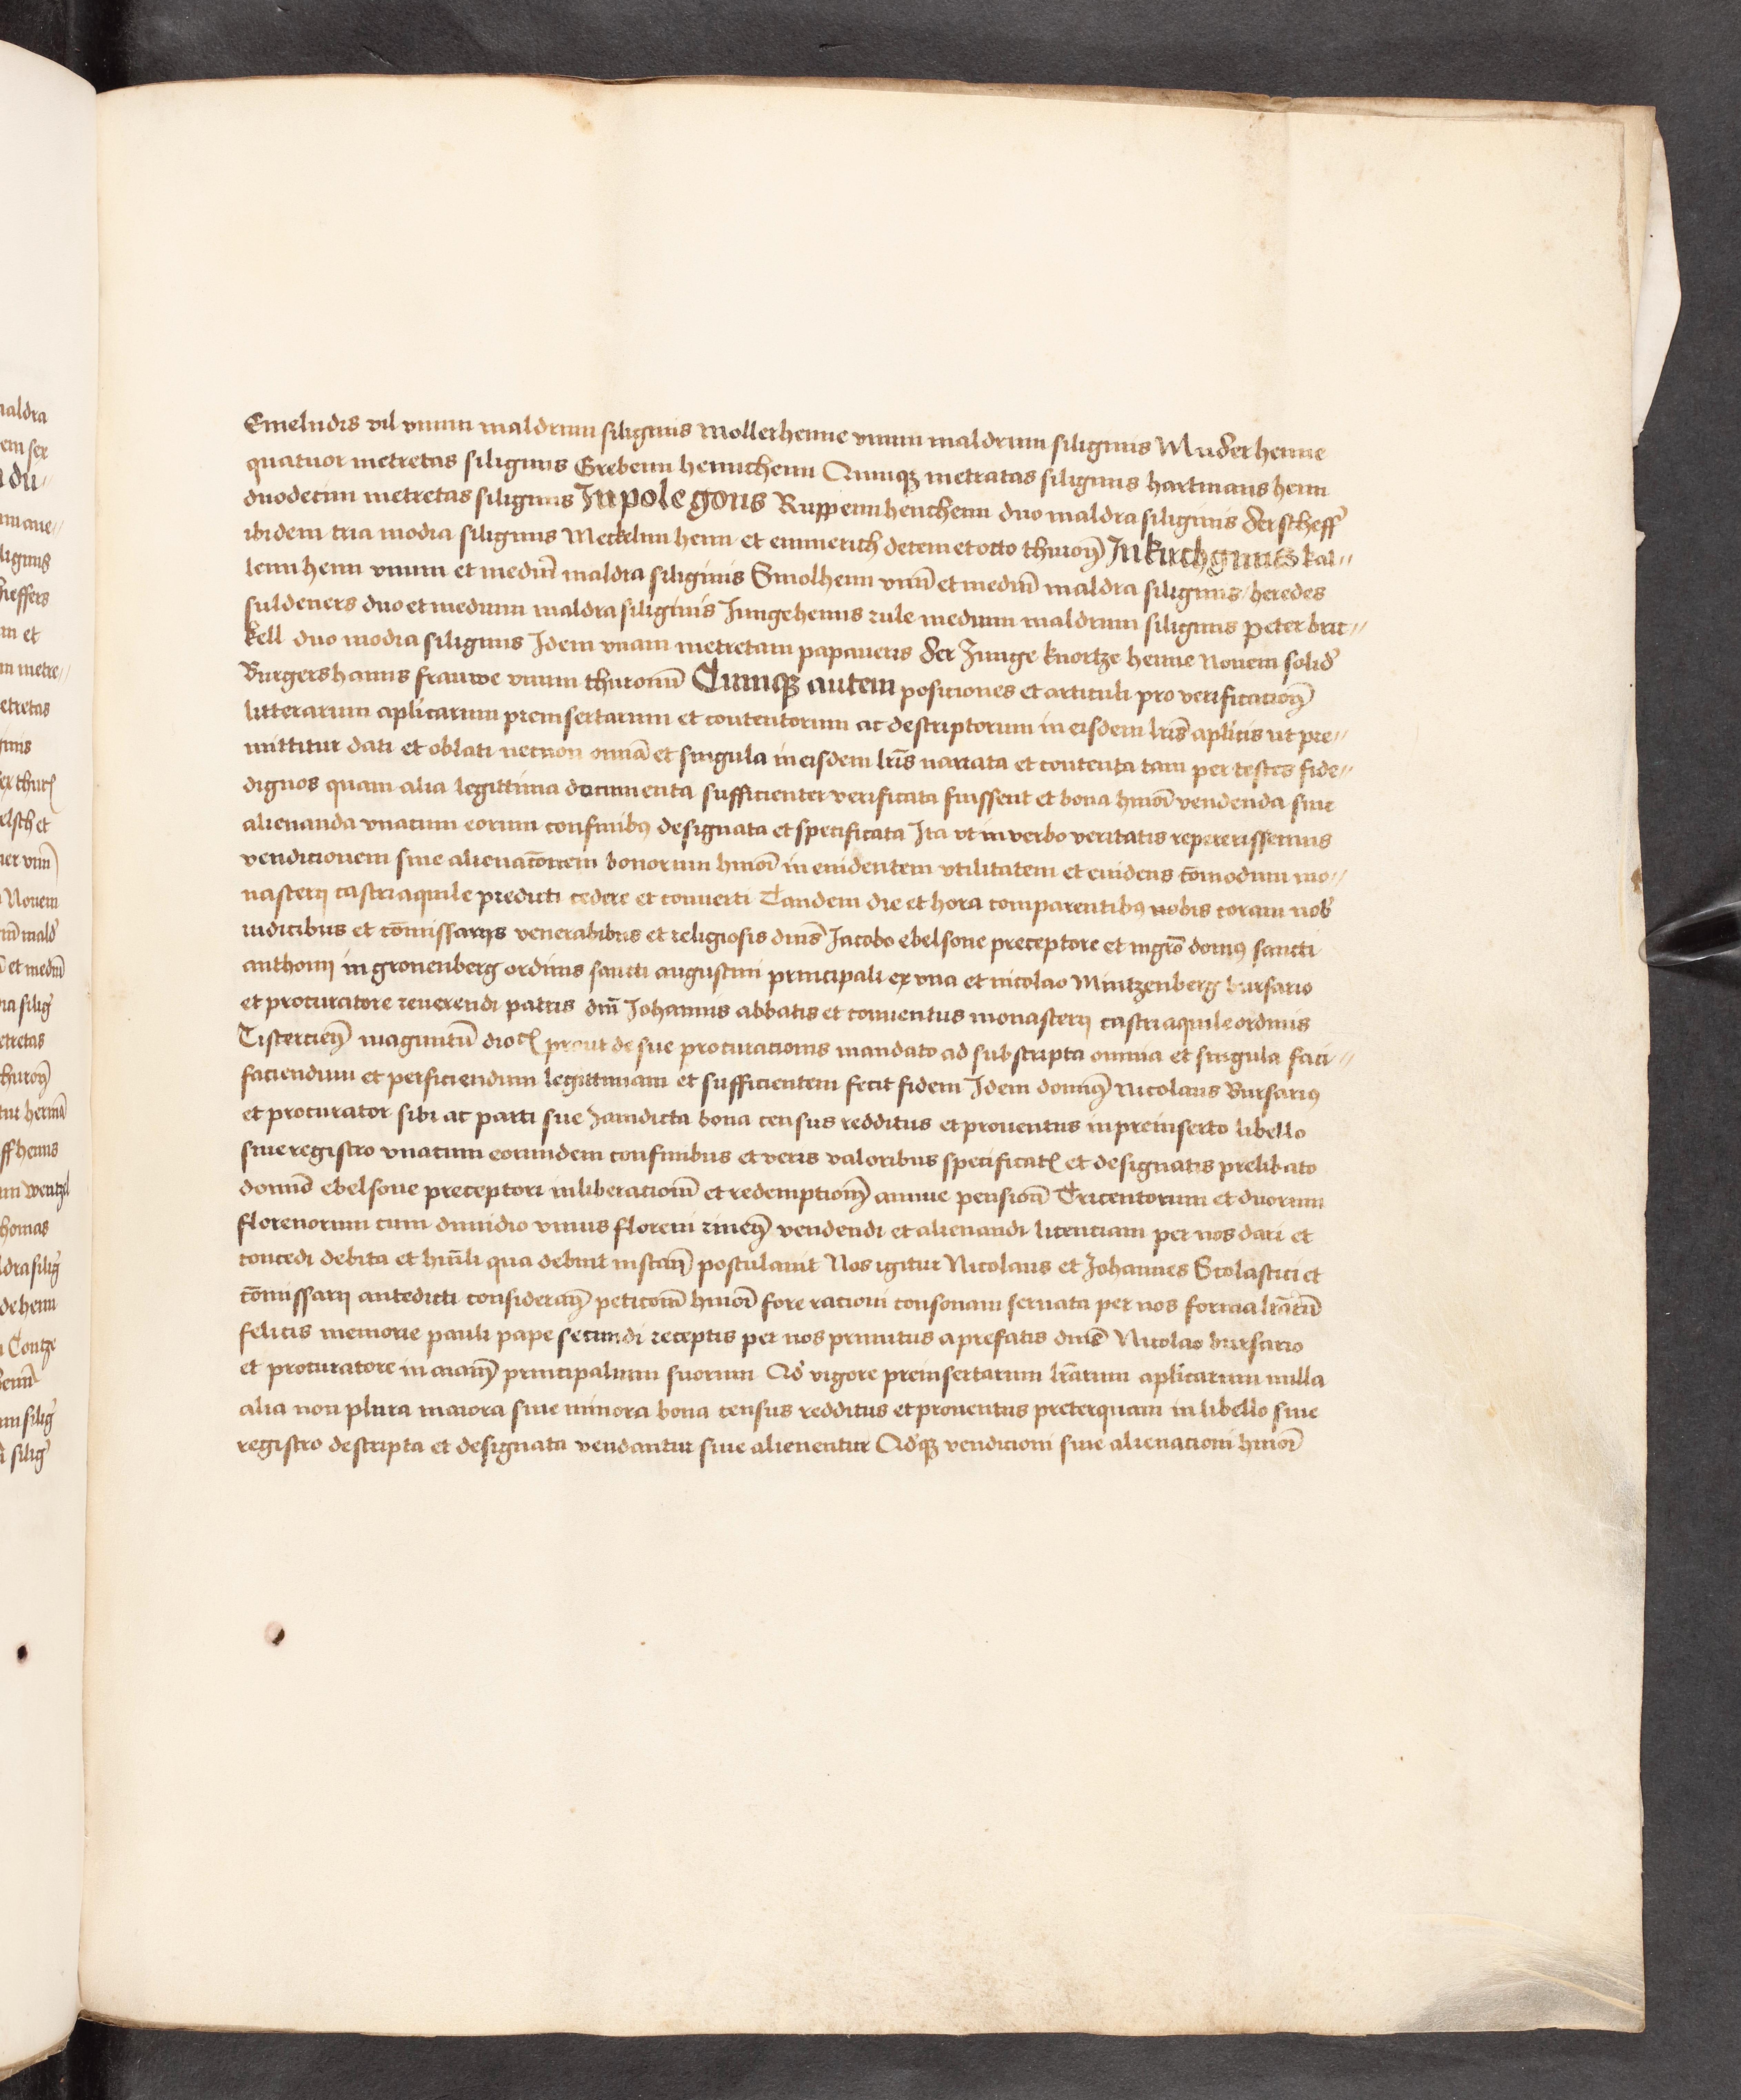 maldra
em sex
du//
m aue//
ligin͞s
heffers
m et
m metre//
etretas
inis
ex thur͞
elsch et
er vnū
Nouem
m mald͛
et mediū
ia silig͛
etretas
thuron͛
tur hermā
ff henns
m wentzel
homas
ldra silig͛
de henn
Contze
m silig͛
silig͛
Emeludis vil vnum maldrum siliginis Mollerhenne vnum maldrum siliginis Muderhenne
quatuor metretas siliginis Grebenn hennchenn Quinqꝫ metratas siliginis hartmans henn
duodecim metretas siliginis In pole gons Ruppenn henchenn duo maldra siliginis der scheff͛
ibidem tria modia siliginis Meckelnn henn et emmerich decem et octo thuron͛ In kirchginns kal//
lenn henn vnum et mediū maldra siliginis Smolhenn vnū et mediū maldra siliginis / heredes
suldeners duo et medium maldra siliginis Jungehenns rule medium maldrum siliginis peter brit//
kell duo modia siliginis Idem vnam metretam papaueris der Junge knortze henne Nouem solid͛
Burgers hanns frauwe vnum thuronū Cumqꝫ autem posiciones et articuli pro verificacion͛
litterarum aplicarum preinsertarum et contentorum ac descriptorum in eisdem lr͞is aplicis ut pre//
mittitur dati et oblati necnon om̄ia et singula in eisdem lr͞is narrata et contenta tam per testes fide//
dignos quam alia legittima documenta sufficienter verificata fuissent et bona hmōi vendenda siue
alienanda vnacum eorum confinibꝰ designata et specificata Ita vt in verbo veritatis repererissemus
vendicionem siue alienac͞onem bonorum hmōi in euidentem vtilitatem et euidens cōmodum mo//
nasterij castriaquile predicti cedere et conuerti Tandem die et hora comparentibꝰ nobis coram nob͛
iudicibus et cōmissarijs venerabibus et religiosis dnīs Jacobo ebelsone preceptore et mgrō domꝰ sancti
anthonij in gronenberg ordinis sancti augustini principali ex vna et nicolao Mintzenberg bursario
et procuratore reuerendi patris dnī Johannis abbatis et conuentus monasterij castriaquile ordinis
Cistercien͛ maguntin͛ dioc͛ prout de sue procuracionis mandato ad subscripta omnia et singula faci//
faciendum et perficiendum legittimam et sufficientem fecit fidem Idem domin͛ Nicolaus Bursariꝰ
et procurator sibi ac parti sue Jamdicta bona census redditus et prouentus in preinserto libello
siue registro vnacum eorundem confinibus et veris valoribus specificat͛ et designatis prelibato
domīo ebelsone preceptori in liberacionē et redemptionē annue pensionē Tricentorum et duorum
florenorum cum dimidio vnius floreni rinen͛ vendendi et alienandi licenciam per nos dari et
concedi debita et humīli qua debuit instan͛ postulauit Nos igitur Nicolaus et Johannes Scolastici et
cōmissarij antedicti consideran͛ peticonē hmōi fore racioni consonam seruata per nos forma lr͞arū
felicis memorie pauli pape secundi receptis per nos primitus a prefatis dnīs Nicolao bursario
et procuratore in aiam͛ principalium suorum Qd͛ vigore preinsertarum lr͞arum aplicarum nulla
alia non plura maiora siue minora bona census redditus et prouentus preterquam in libello siue
registro descripta et designata vendantur siue alienentur Qd͛qꝫ vendicioni siue alienacioni hmōi